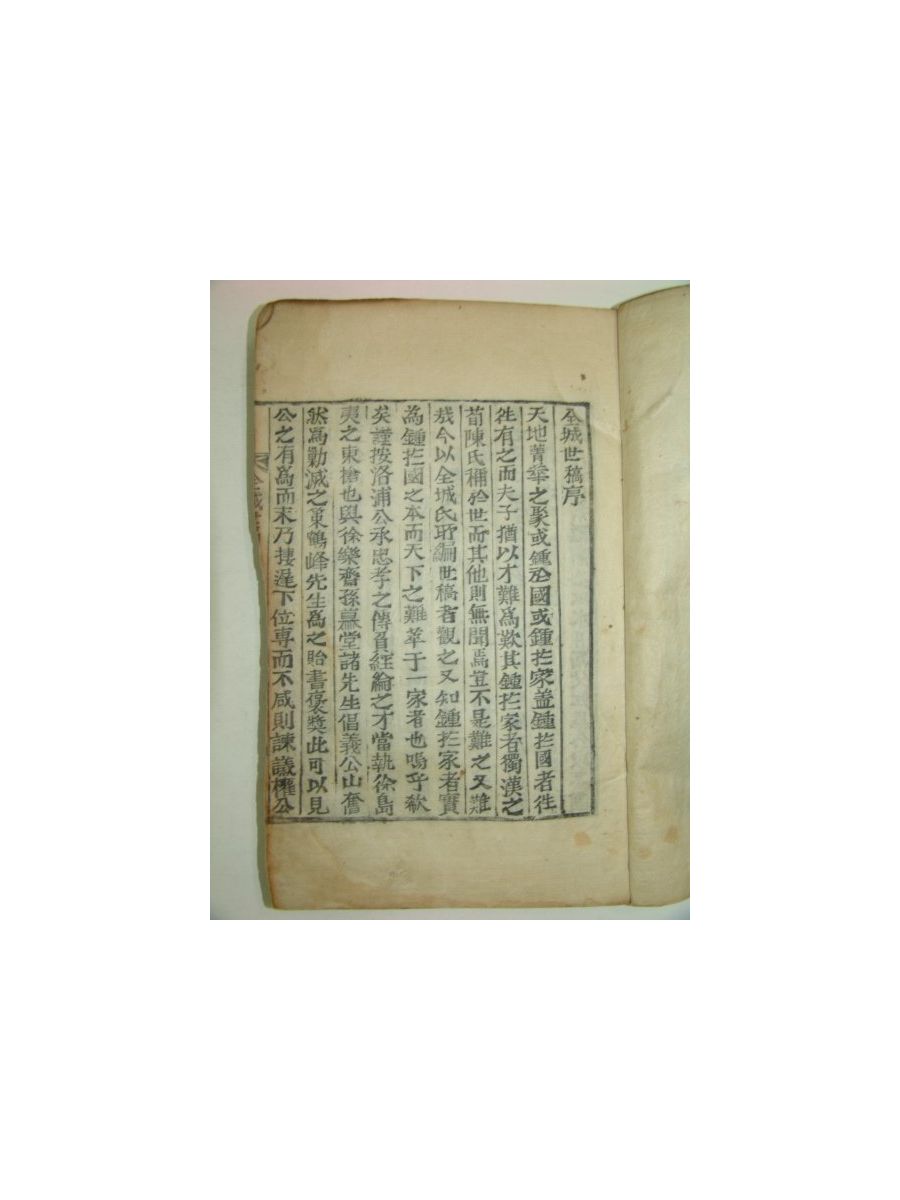 全城世稿序
天地菁華之聚或鍾於國或鍾於家盖鍾於國者徃
徃有之而夫子猶以才難爲歎其鍾於家者獨漢之
荀陳氏稱於世而其他則無聞焉豈不是難之又難
哉今以全城氏所編世稿者觀之又知鍾於家者實
為鍾於國之本而天下之難萃于一家者也嗚乎欷
矣謹按洛浦公承忠孝之傳負經綸之才當執徐島
夷之東搶也與徐樂齋孫慕堂諸先生倡義公山奮
然爲勦滅之策鶴峰先生爲之貽書褒奬此可以見
公之有爲而末乃捿遅下位専而不咸則諫議權公
全城世稿